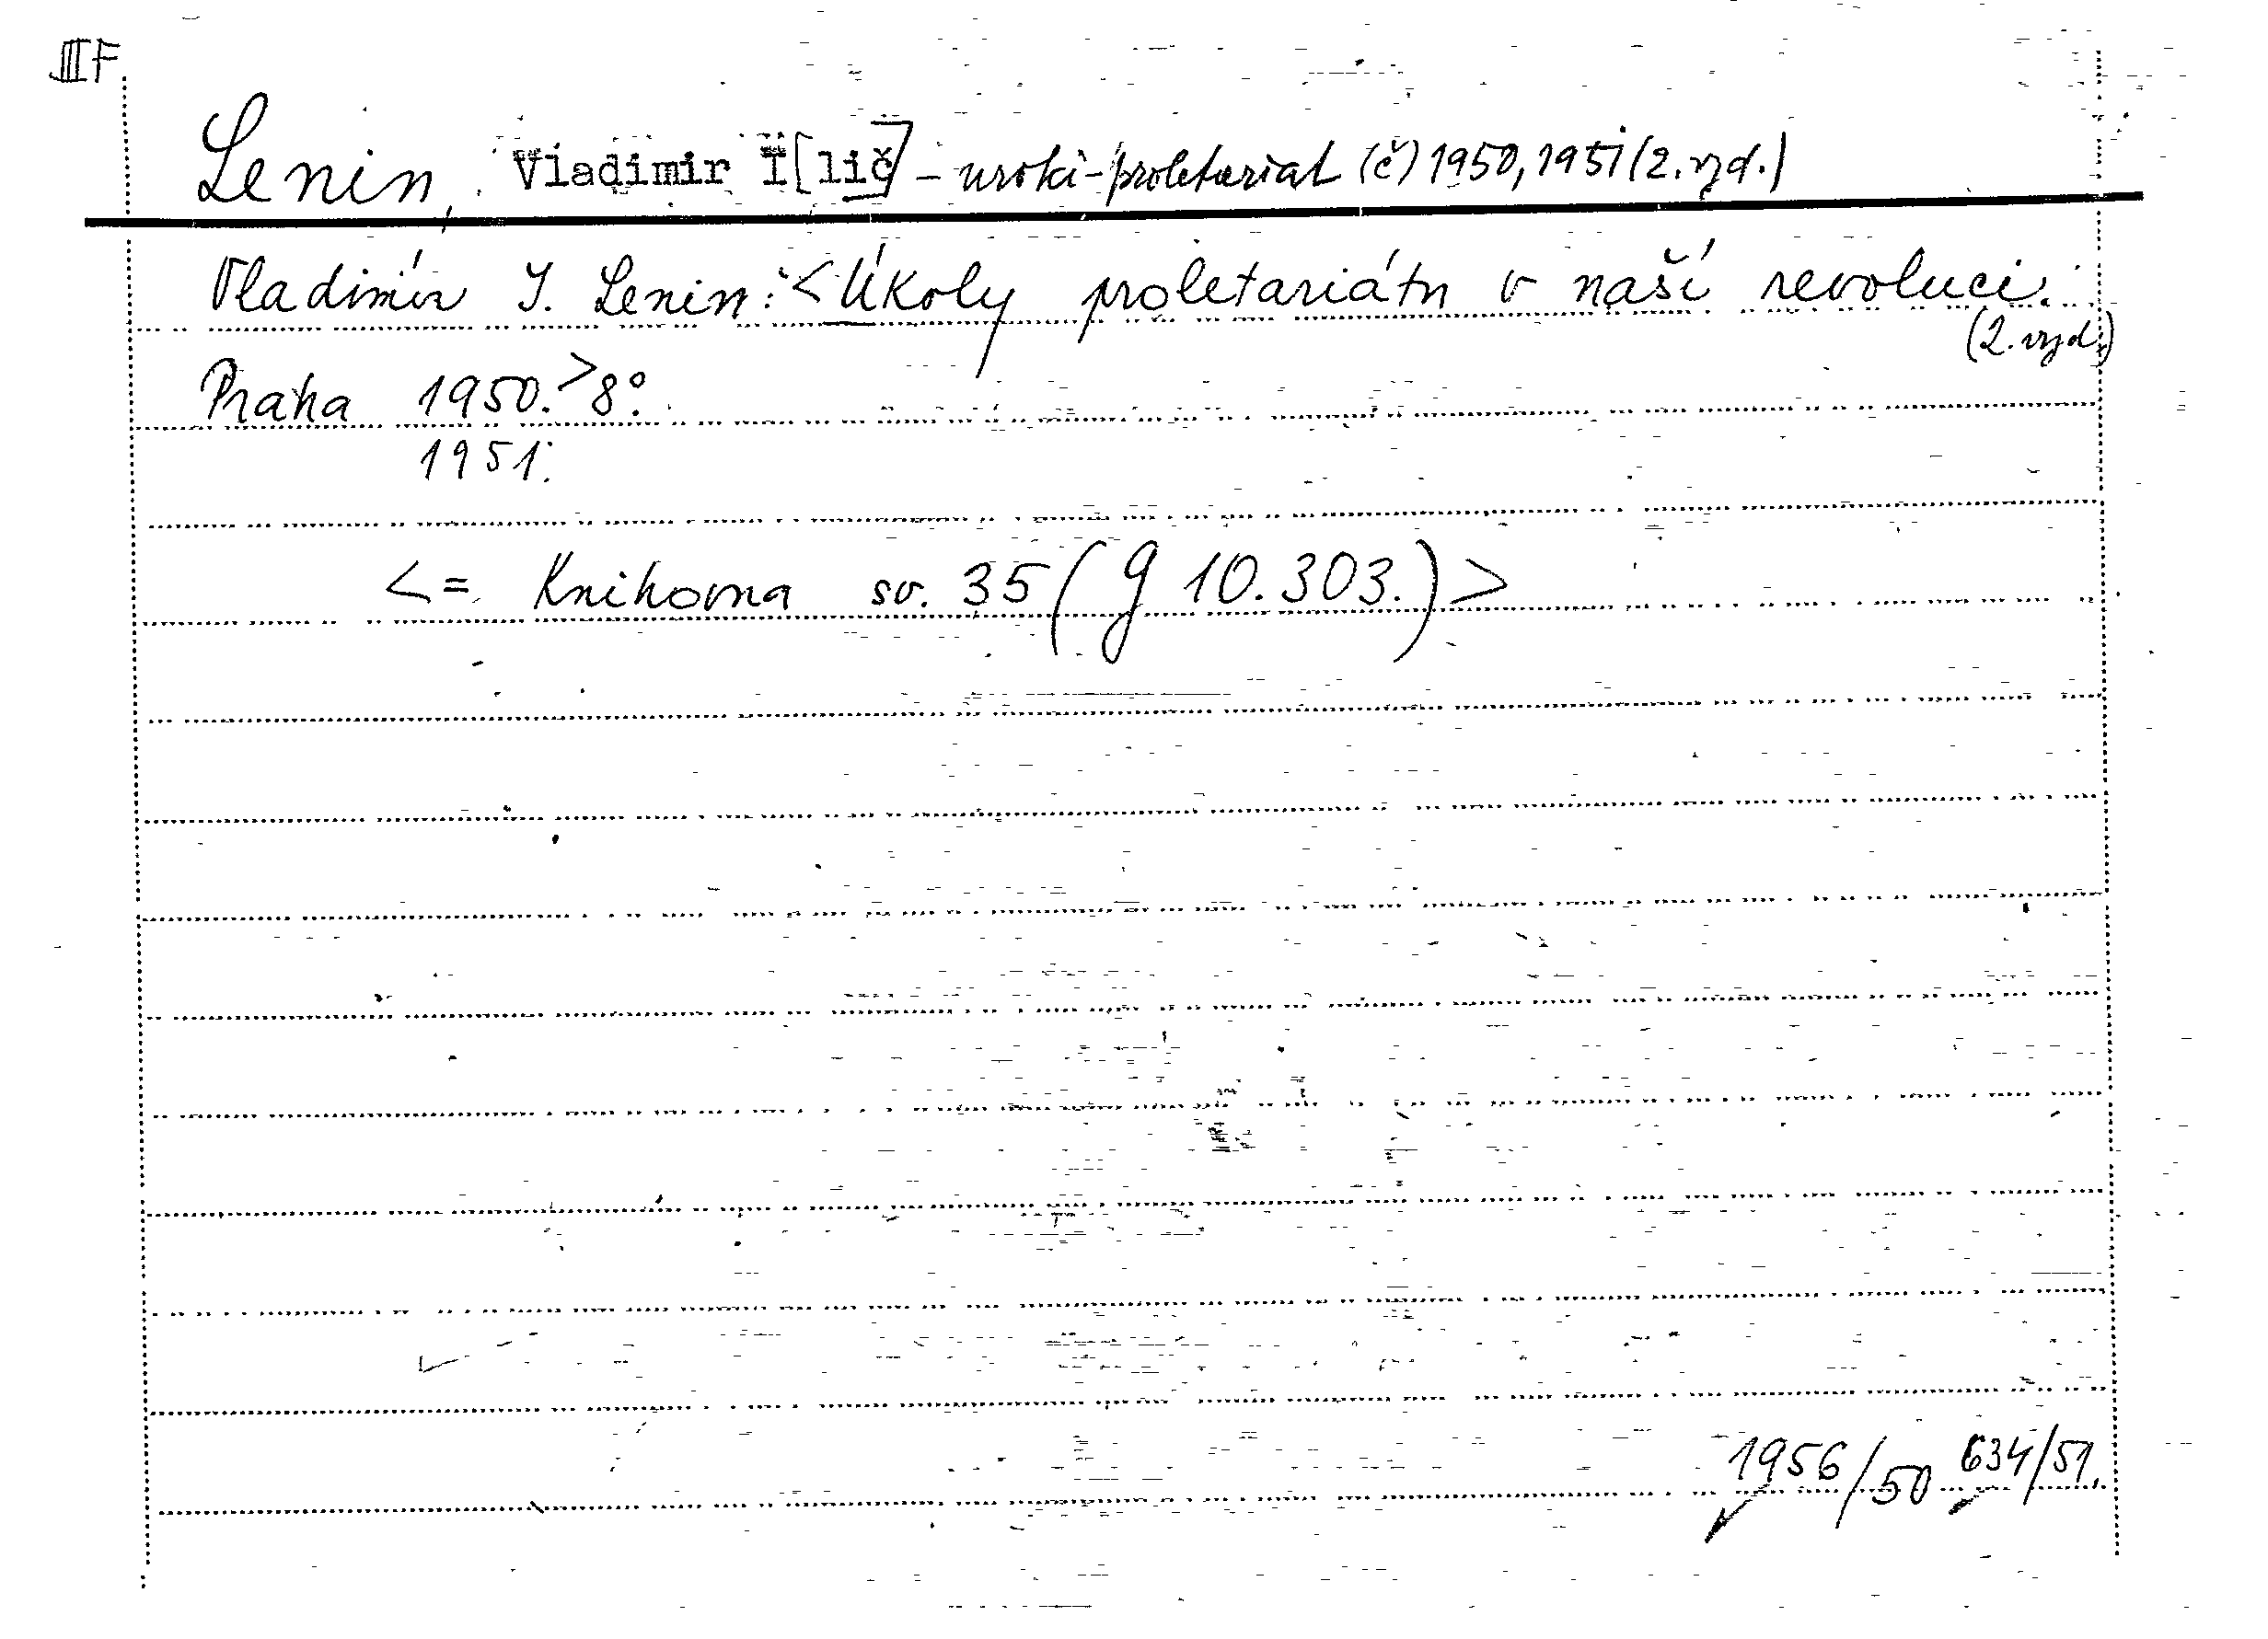 III F
Lenin, Vladimir I[lič] - uroki - proletariat (č) 1950, 1951 (2. vyd.)
Vladimír I. Lenin: < Úkoly proletariátu v naší revoluci.
(2. vyd.)
Praha 1950.> 8°.
1951.
<= Knihovna sv. 35 (g 10.303.) >
1956/50 634/51.